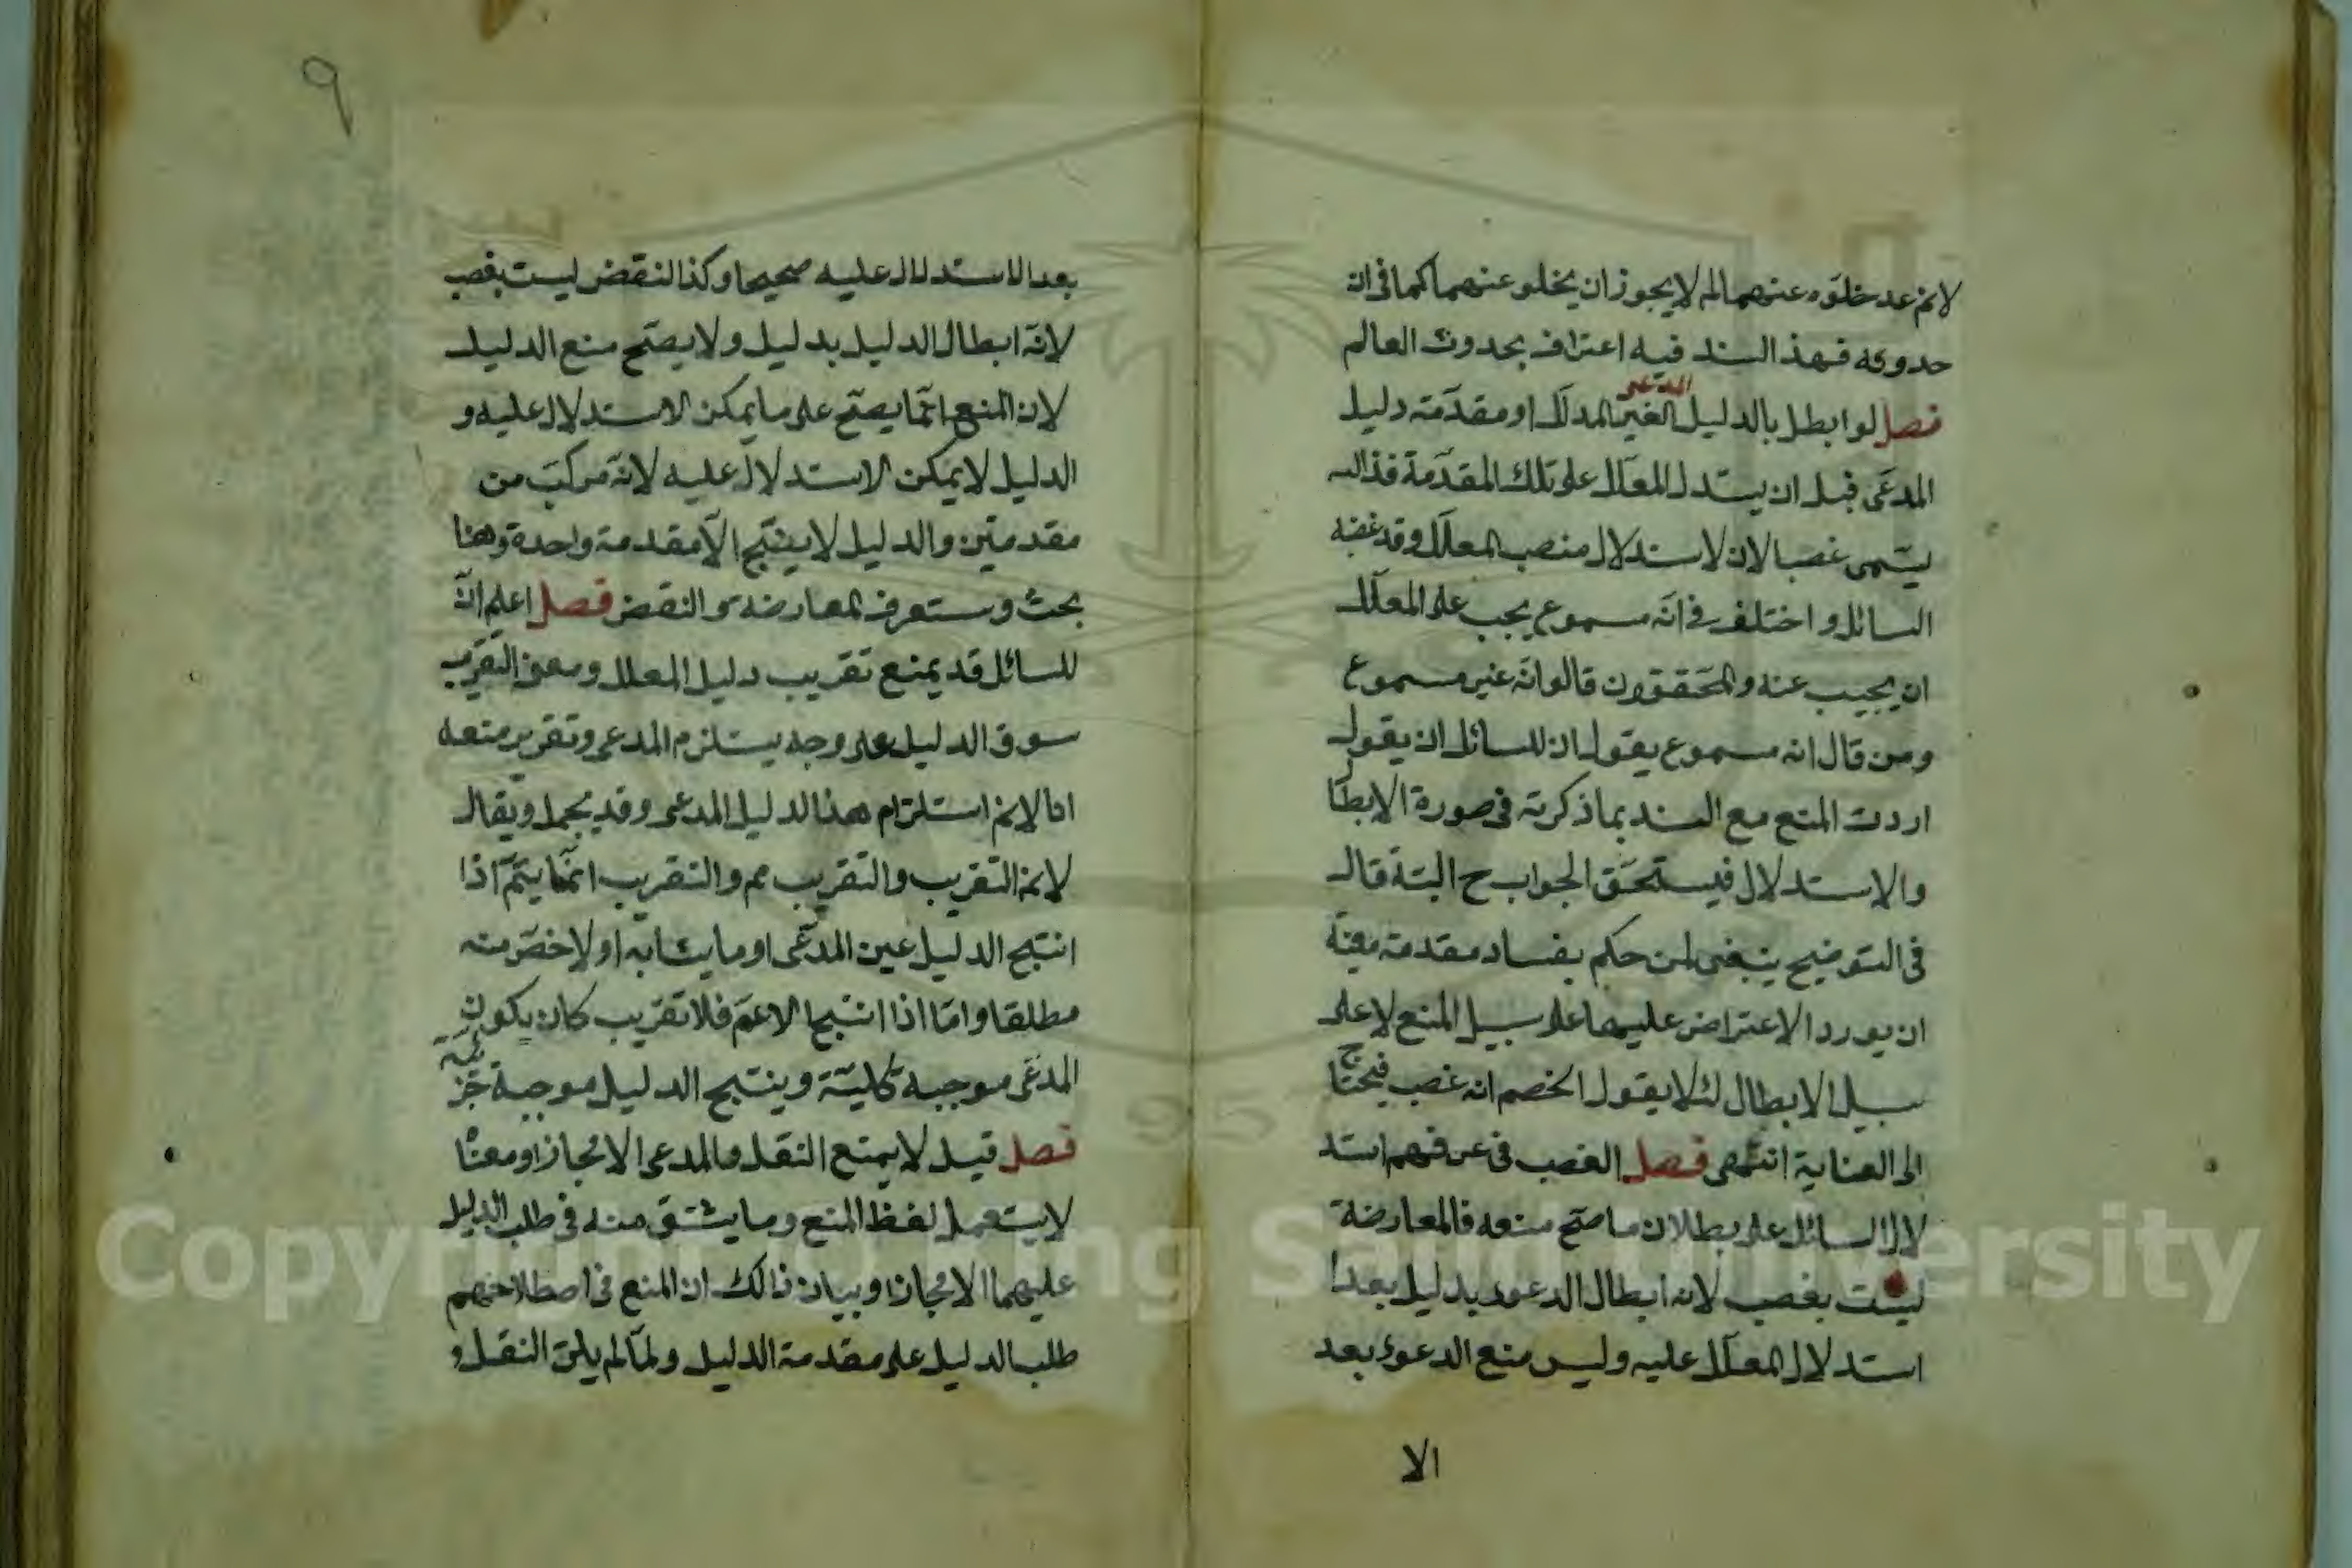 لانم عد خلوه عنهما لم لا يجوز ان يخلو عنهما كما في ان
حدوثه فهذ السند فيه اعتراف بحدوث العالم
المدعى
فصل لو ابطل بالدليل الغير المدلل او مقدمة دليل
المدعى قبل ان يستدل المعلل على تلك المقدمة فذالك
يسمى غصبا لان لاستدلال منصب المعلل وقد غصبه
السائل و اختلف في انه مسموع يجب على المعلل
ان يجيب عنه والمحققون قالوا انه غير مسموع
ومن قال انه مسموع يقول ان للسائل ان يقول
اردت المنع مع السند بما ذكرته في صورة الابطال
والاستدلال فيستحق الجواب ح البتة قال
في التوضيح ينبغي لمن حكم بفساد مقدمة معينة
ان يورد الاعتراض عليها على سبيل المنع لا على
سبيل الابطال لئلا يقول الخصم انه غصب فيحتاج
الى العناية انتهى فصل الغصب في عرفهم استد
لال السائل على بطلان ما صح منعه فالمعارضة
ليست بغصب لانه ابطال الدعوى بدليل بعد ا
استدلال المعلل عليه وليس منع الدعوى بعد
الا
٩
بعد الاستدلال عليه صحيحا وكذا النقض ليست بغصب
لانه ابطال الدليل بدليل ولا يصح منع الدليل
لان المنع انما يصح على ما يمكن الاستدلال عليه و
الدليل لا يمكن الاستدلال عليه لانه مركب من
مقدمتين والدليل لا ينتج الا مقدمة واحدة وهنا
بحث وستعرف المعارضة والنقض فصل اعلم ان
للسائل قد يمنع تقريب دليل المعلل ومعنى التقريب
سوق الدليل على وجه يستلزم المدعى وتقرير منعه
انا لانم استلزام هذا الدليل المدعى وقد يجمل ويقال
لانم التقريب والتقريب مم والتقريب انما يتم اذا
انتج الدليل عين المدعى او ما يشابه او لاخص منه
مطلقا واما اذا انتج الاعم فلا تقريب كان يكون
المدعى موجبة كلية وينتج الدليل موجبة جزئية
فصل قيل لا يمنع النقل والمدعى الا مجازا ومعناه
لا يستعمل لفظ المنع وما يشتق منه في طلب الدليل
عليهما الا مجازا وبيان ذالك ان المنع في اصطلاحهم
طلب الدليل على مقدمة الدليل ولما لم يكن النقل و